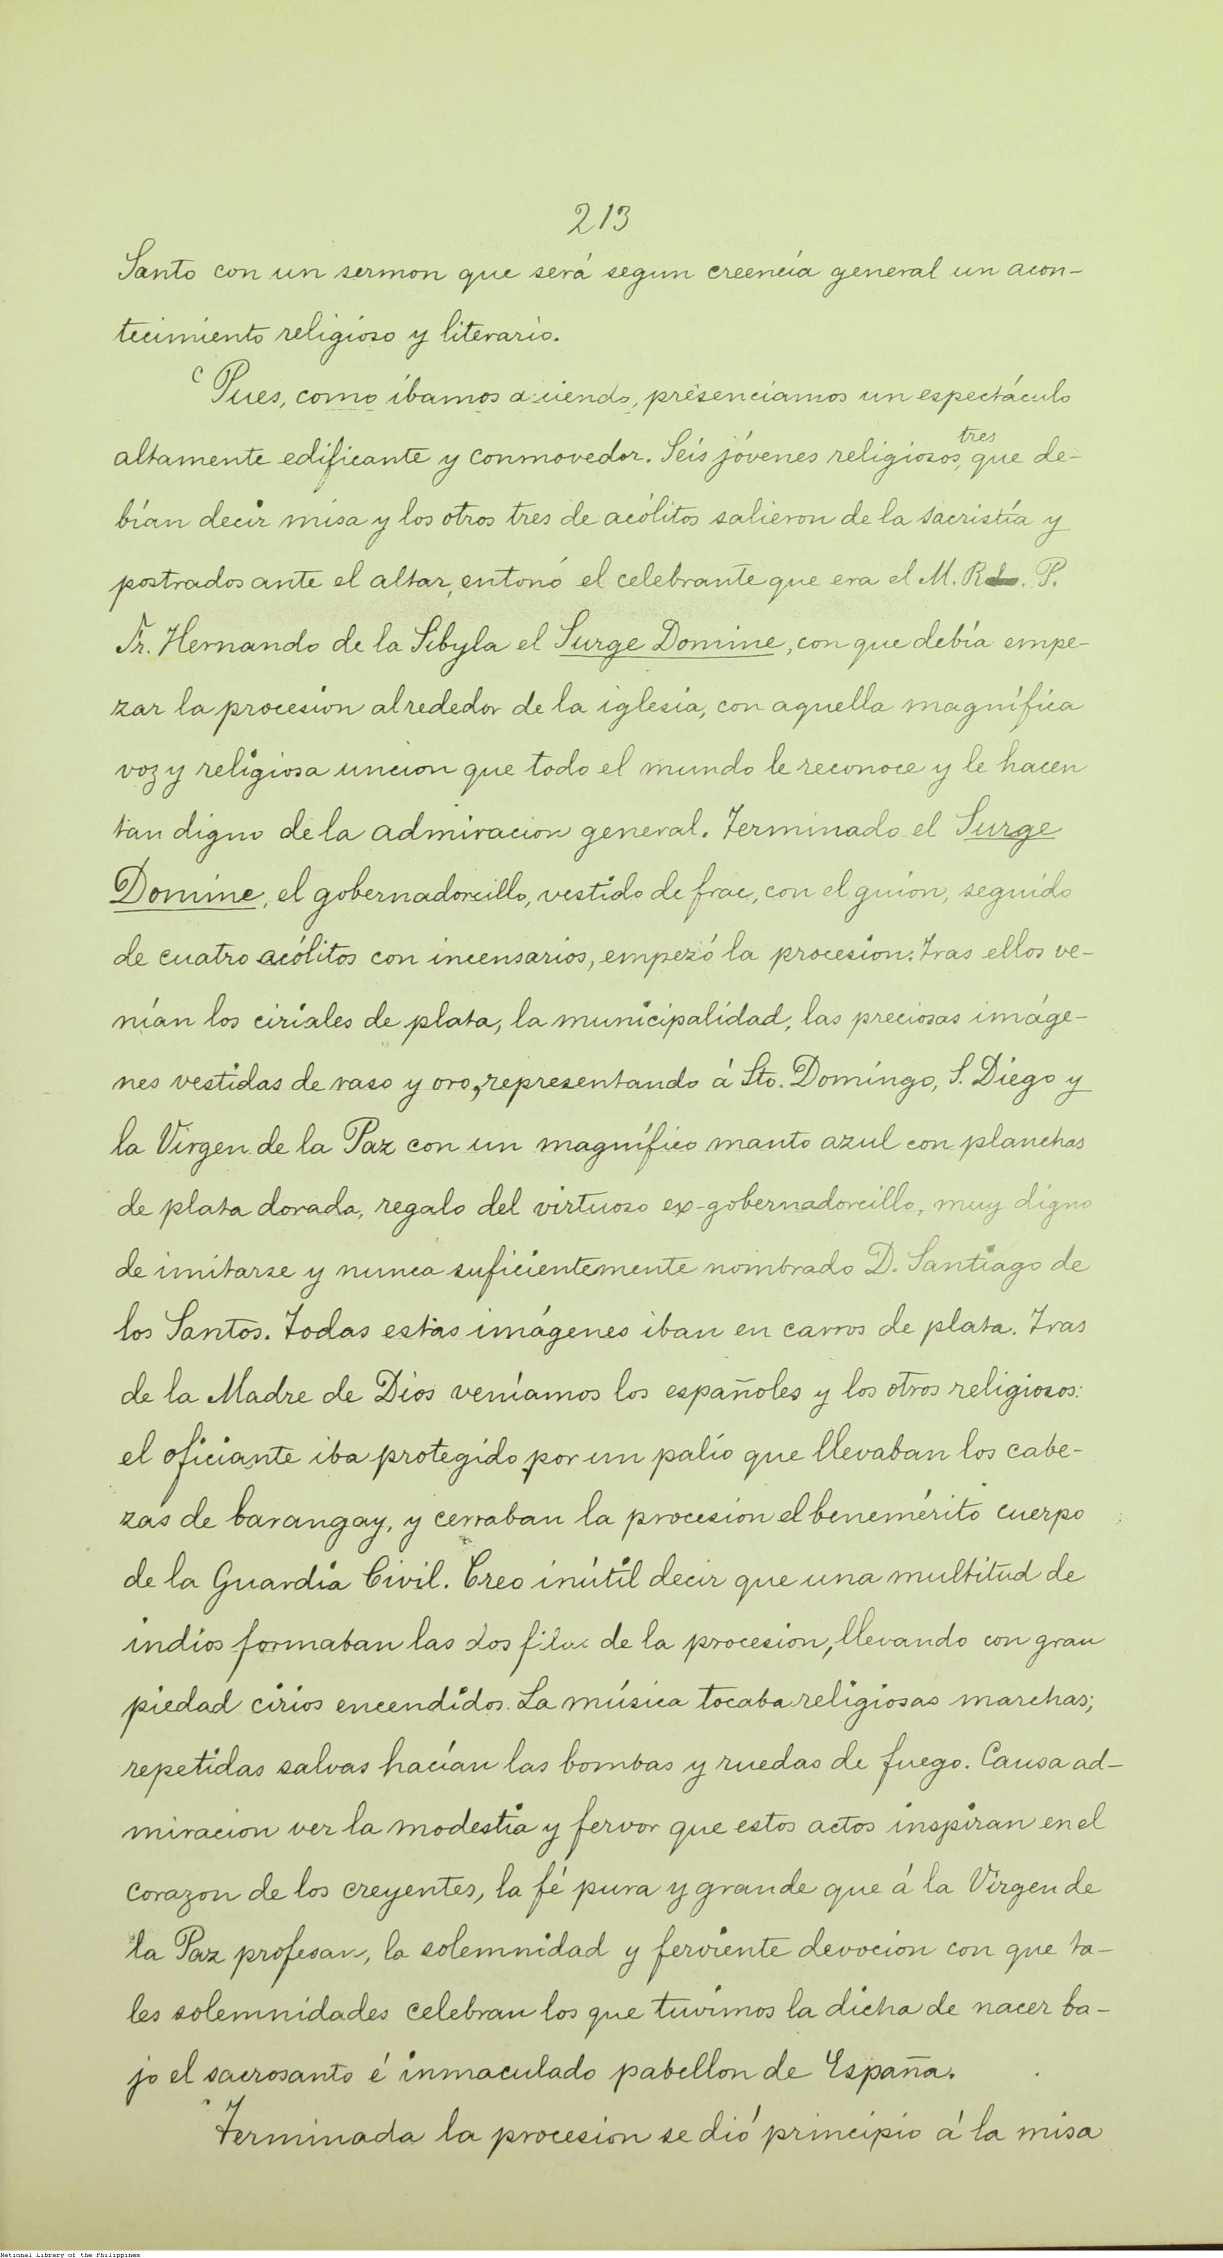 213
Santo con un sermon que será segun creencia general un acon-
tecimiento religioso y literario.
Pues, como íbamos diciendo, presenciamos un espectáculo
altamente edificante y conmovedor. Seis jóvenes religiosos, tres que de-
bían decir misa y los otros tres de acólitos salieron de la sacristía y
postrados ante el altar, entonó el celebrante que era el M. R. P.
Fr. Hernando de la Sibyla el Surge Domine, con que debía empe-
zar la procesion alrededor de la iglesia, con aquella magnífica
voz y religiosa uncion que todo el mundo le reconoce y le hacen
tan digno de la admiracion general. Terminado el Surge
Domine, el gobernadorcillo, vestido de frac, con el guion, seguido
de cuatro acólitos con incensarios, empezó la procesion. Tras ellos ve-
nían los ciriales de plata, la municipalidad, las preciosas imáge-
nes vestidas de raso y oro, representando á Sto. Domingo, S. Diego y
la Virgen de la Paz con un magnífico manto azul con planchas
de plata dorada, regalo del virtuoso ex-gobernadorcillo, muy digno
de imitarse y nunca suficientemente nombrado D. Santiago de
los Santos. Todas estas imágenes iban en carros de plata. Tras
de la Madre de Dios veníamos los españoles y los otros religiosos:
el oficiante iba protegido por un palio que llevaban los cabe-
zas de barangay, y cerraban la procesion el benemérito cuerpo
de la Guardia Civil. Creo inútil decir que una multitud de
indios formaban las dos filas de la procesion, llevando con gran
piedad cirios encendidos. La música tocaba religiosas marchas;
repetidas salvas hacían las bombas y ruedas de fuego. Causa ad-
miracion ver la modestia y fervor que estos actos inspiran en el
corazon de los creyentes, la fé pura y grande que á la Virgen de
la Paz profesan, la solemnidad y ferviente devocion con que ta-
les solemnidades celebran los que tuvimos la dicha de nacer ba-
jo el sacrosanto é inmaculado pabellon de España.
Terminada la procesion se dió principio á la misa
National Library of the Philippines